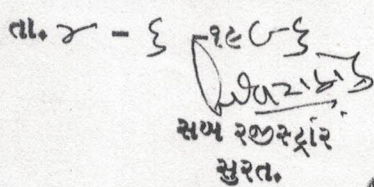 તા. ૨ - ૬ -૧૯૮૬
સબ રજીસ્ટ્રાર
સુરત.